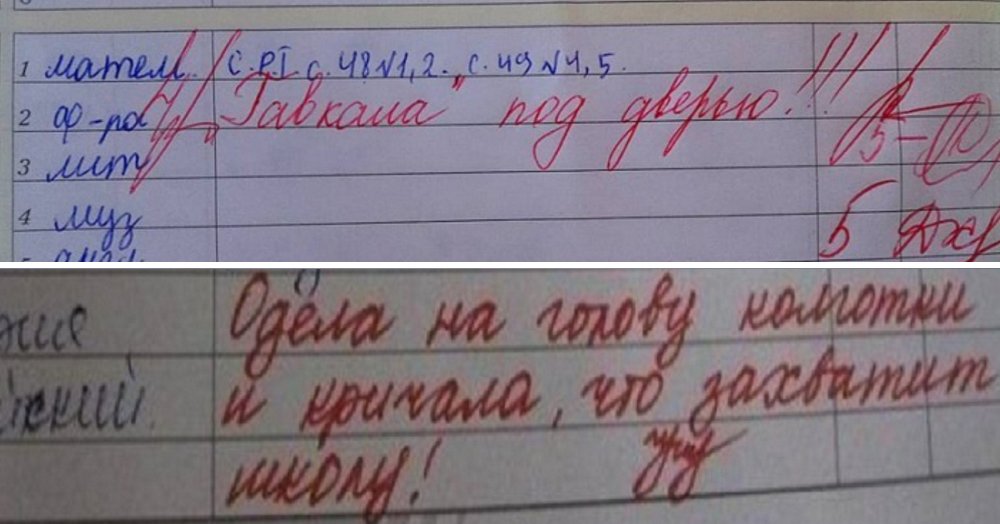 1 матем. с. РТ с. 48 №1, 2. с. 49 №4, 5.
2 ф-ра "Гавкала" под дверью!!!
3 лит 5-
4 муз 5
Одела на голову колготки
и кричала, что захватит
школу!